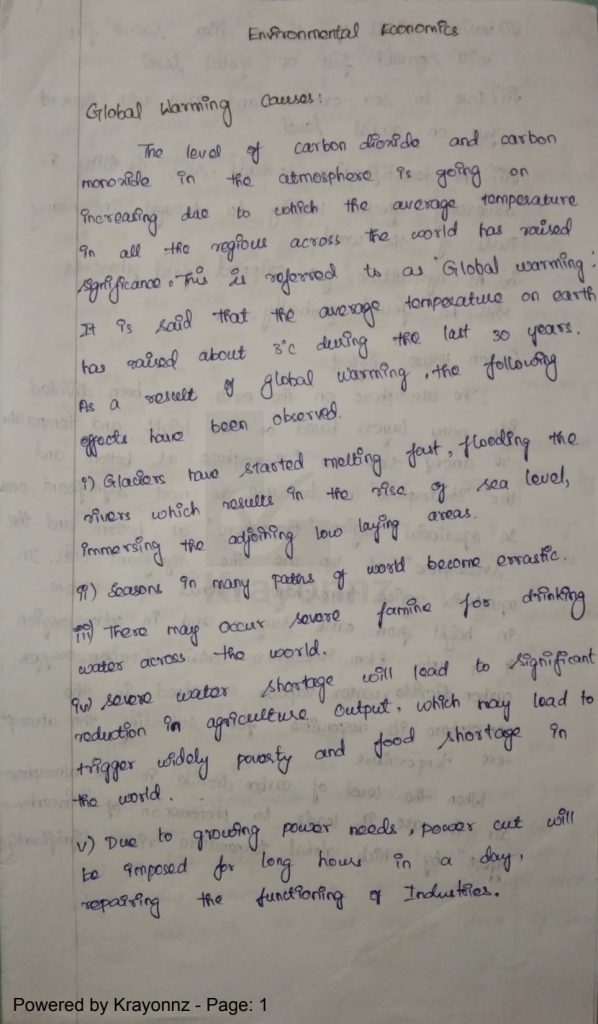 Environmental Economics
Global Warming causes:
The level of carbon dioxide and carbon
monoxide in the atmosphere is going on
increasing due to which the average temperature
in all the regions across the world has raised
significance. This is referred to as "Global warming:
It is said that the average temperature on earth
has raised about 3°c during the last 30 years.
As a result of global warming, the following
effects have been observed.
i) Glaciers have started melting fast, flooding the
rivers which results in the rise of sea level,
immersing the adjoining low laying areas.
ii) Seasons in many paths of world become errastic.
iii) There may occur severe famine for drinking
water across the world.
iv) severe water shortage will lead to significant
reduction in agriculture output. which may lead to
trigger widely poverty and food shortage in
the world.
v) Due to growing power needs, power cut will
be imposed for long hours in a day,
repairing the functioning of Industries.
Powered by Krayonnz - Page: 1